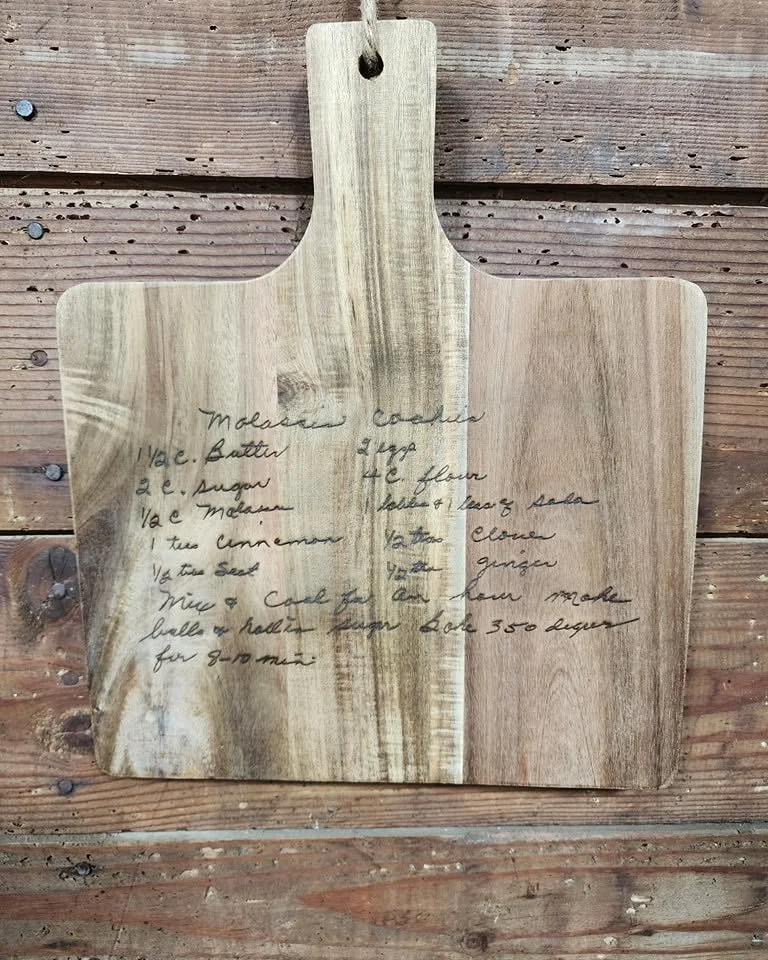 Molasses Cookies
1 1/2 C. Butter 2 eggs
2 C. sugar 4 C. flour
1/2 C Molasses 1 tables & 1 teas of soda
1 tes Cinnemon 1/2 tes Cloves
1/2 tes Salt 1/2 tes ginger
Mix & Cool for an hour make
balls & roll in sugar Bake 350 degrees
for 8-10 min.